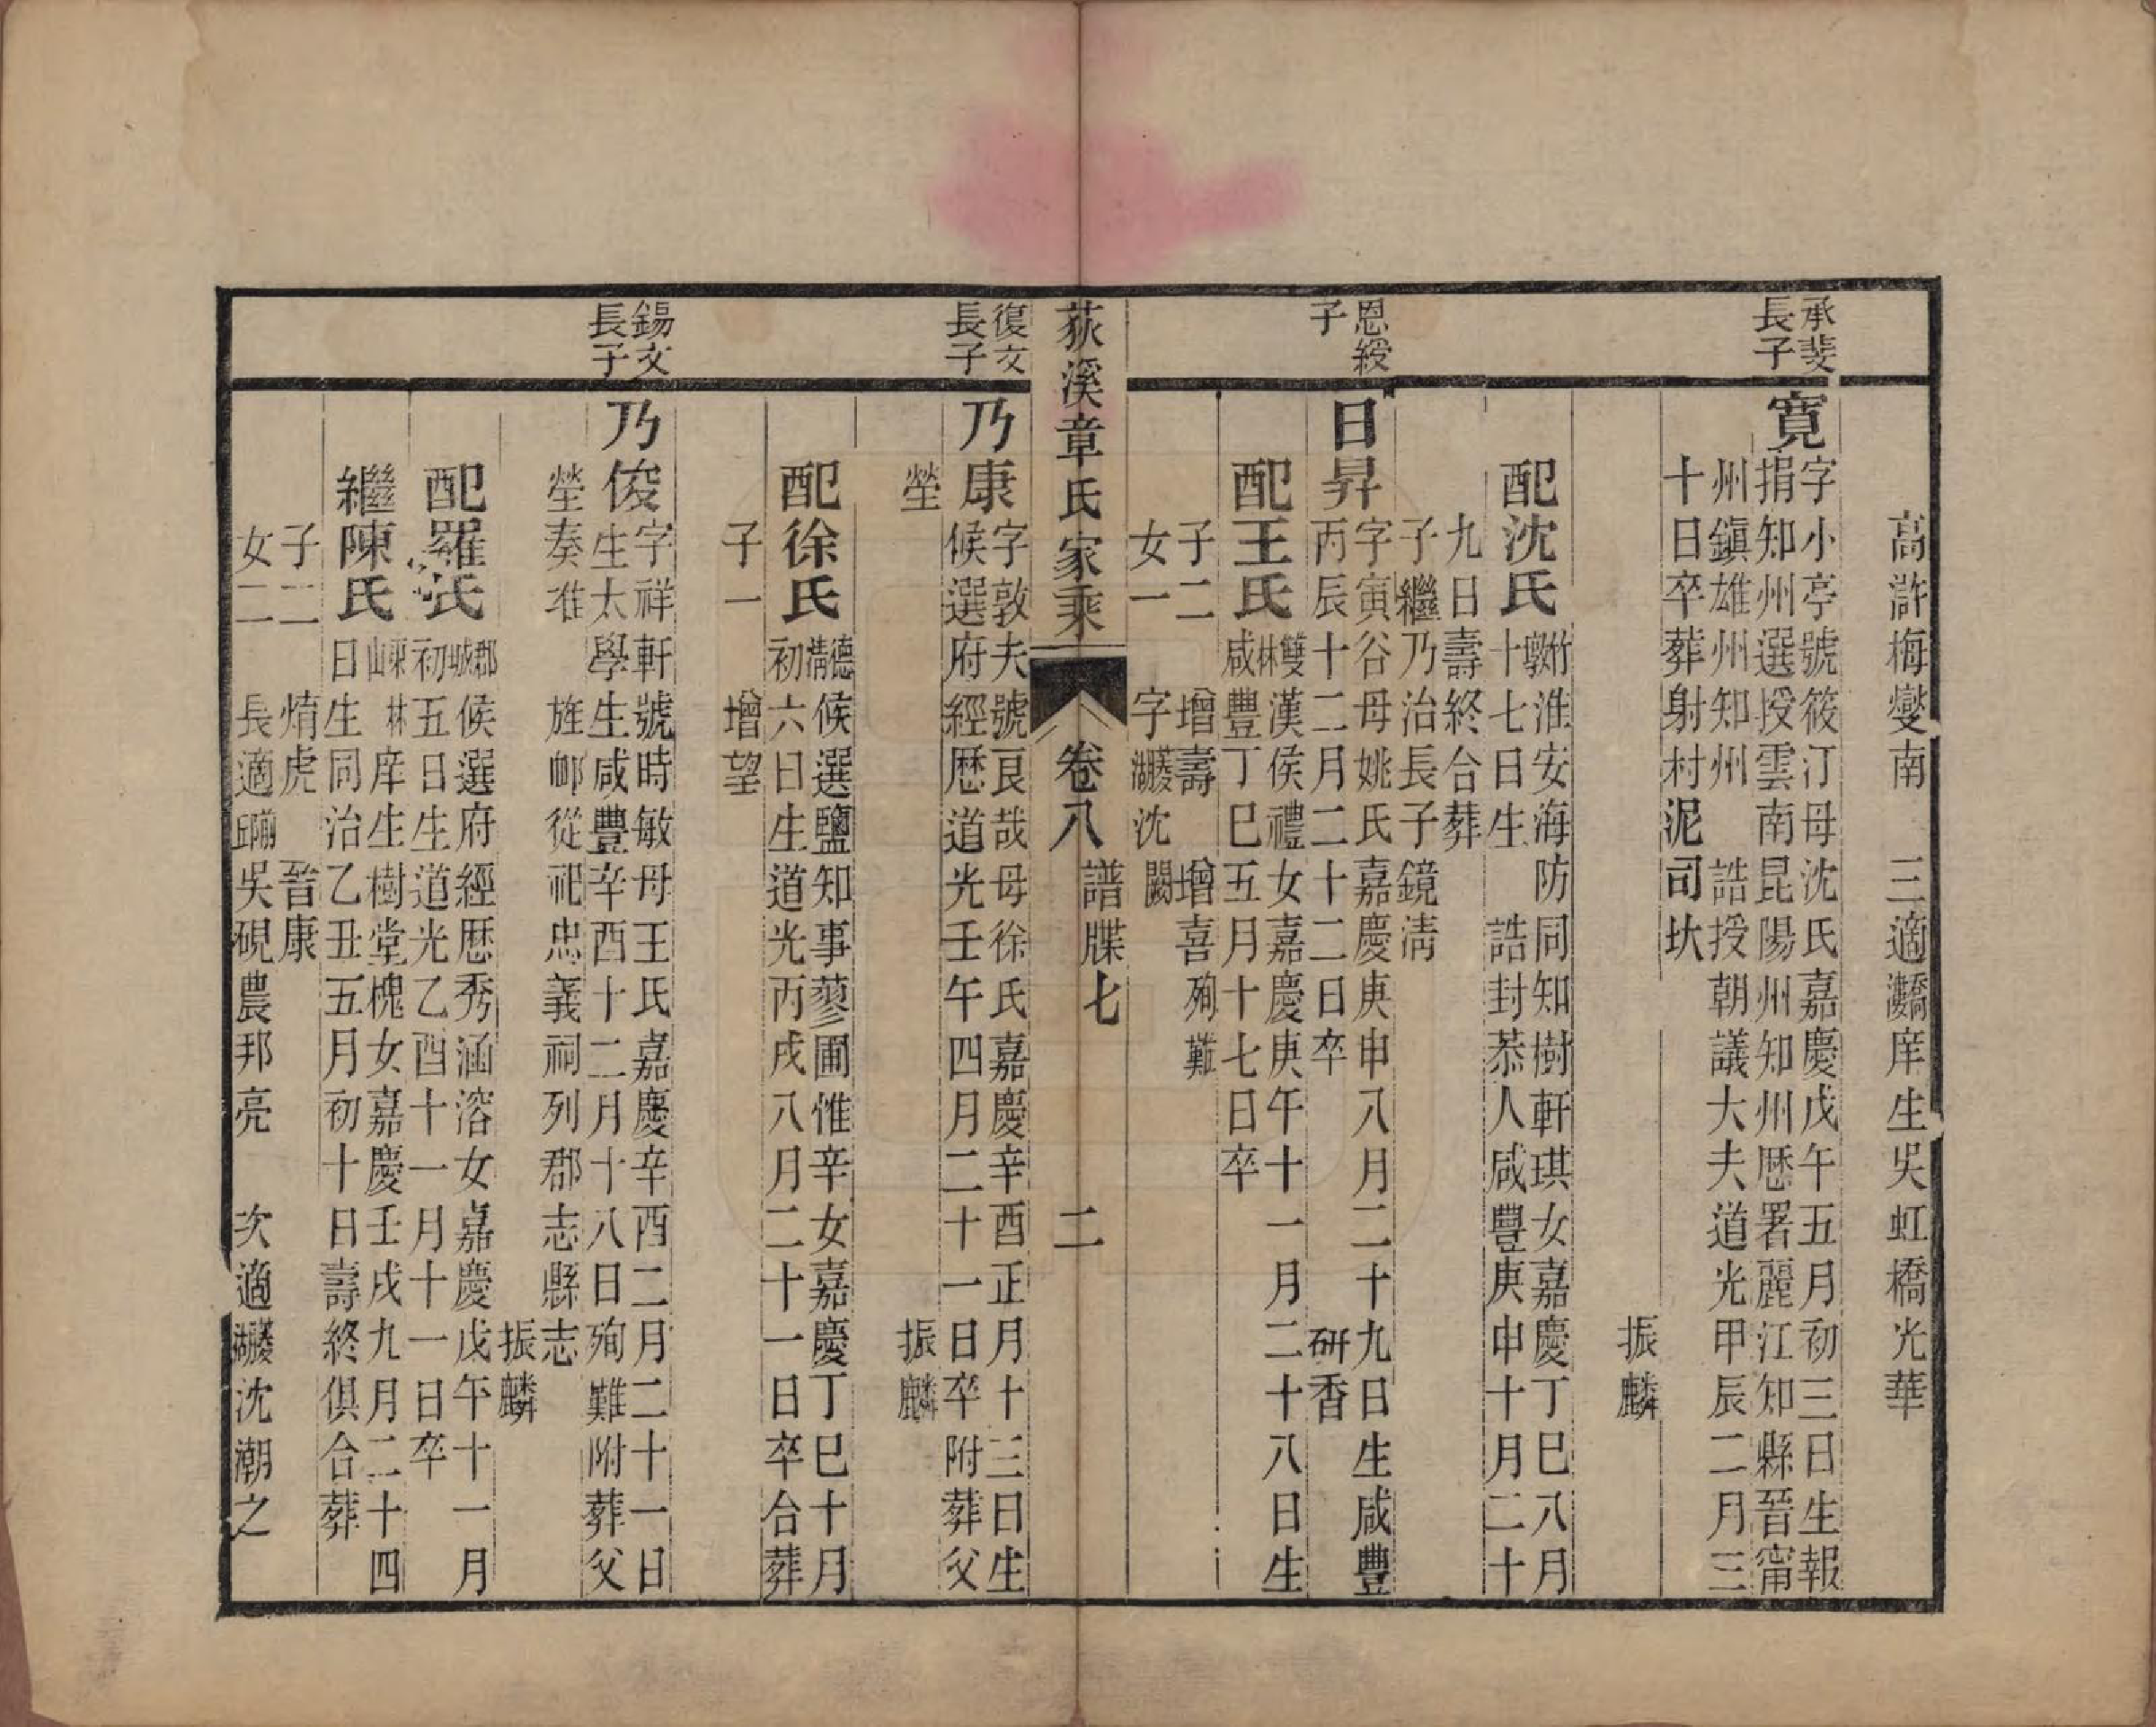 高滸梅燮南　三適庠生吳虹橋光華
承斐長子
寬
字小亭號筱汀母沈氏嘉慶戊午五月初三日生報
捐知州選授雲南昆陽州知州歷署麗江知縣晉甯
州鎮雄州知州　誥授朝議大夫道光甲辰二月三
十日卒葬射村泥司坎
振麟
配沈氏
竹墩淮安海防同知樹軒琪女嘉慶丁巳八月
十七日生　誥封恭人咸豐庚申十月二十
九日壽終合葬
子繼乃治長子鏡淸
恩綬子
日昇
字寅谷母姚氏嘉慶庚申八月二十九日生咸豐
丙辰十二月二十二日卒　研香
配王氏
雙林漢侯禮女嘉慶庚午十一月二十八日生
咸豐丁巳五月十七日卒
子二　增壽　增喜殉難
女一　字菱湖沈　闕
荻溪章氏家乘　卷八　譜牒七　二
復文長子
乃康
字敦夫號艮哉母徐氏嘉慶辛酉正月十三日生
候選府經歷道光壬午四月二十一日卒附葬父
塋　振麟
配徐氏
德淸候選鹽知事蓼圃惟辛女嘉慶丁巳十月
初六日生道光丙戌八月二十一日卒合葬
子一　增望
錫文長子
乃俊
字祥軒號時敏母王氏嘉慶辛酉二月二十一日
生太學生咸豐辛酉十二月十八日殉難附葬父
塋奏准　旌卹從祀忠義祠列郡志縣志
振麟
配羅氏
郡城候選府經歷秀涵溶女嘉慶戊午十一月
初五日生道光乙酉十一月十一日卒
繼陳氏
東林山庠生樹堂槐女嘉慶壬戌九月二十四
日生同治乙丑五月初十日壽終俱合葬
子二　焴虎　晉康
女二　長適吳硯農邦亮　次適菱湖沈潮之